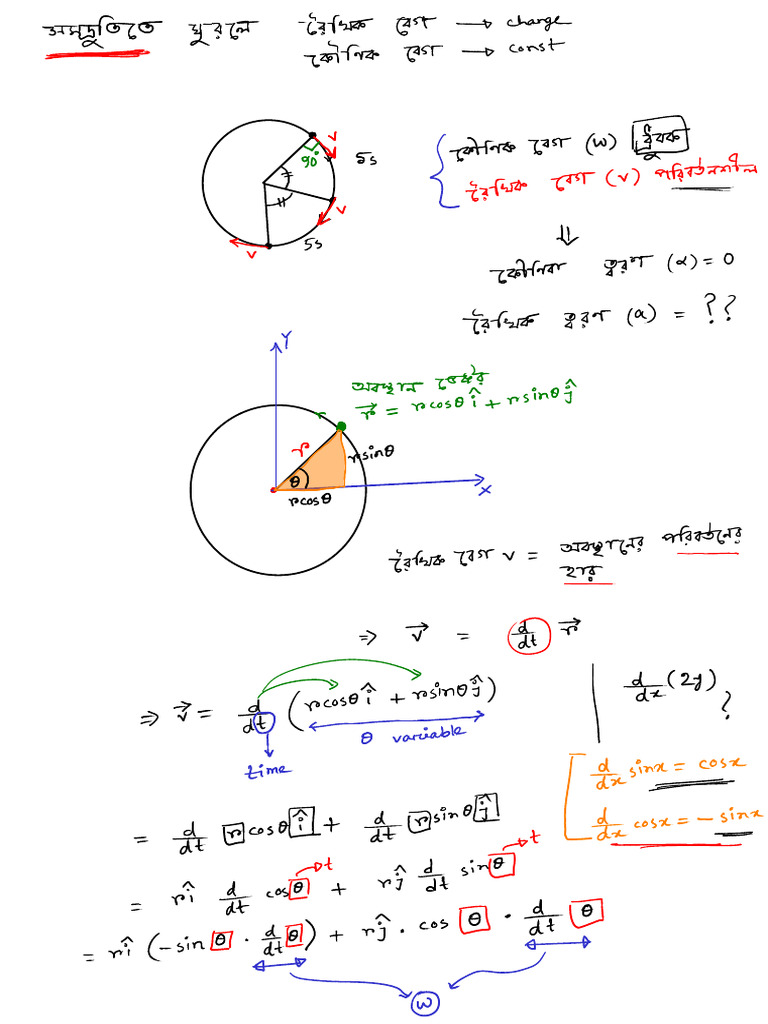 সমদ্রুতিতে ঘুরলে রৈখিক বেগ → change
কৌণিক বেগ → const
v
90°
5s
v
v
5s
কৌণিক বেগ (ω) ধ্রুবক
রৈখিক বেগ (v) পরিবর্তনশীল
⇓
কৌণিক ত্বরণ (α) = 0
রৈখিক ত্বরণ (a) = ??
Y
অবস্থান ভেক্টর
r⃗ = rcosθ î + rsinθ ĵ
r
r
rsinθ
θ
rcosθ
X
রৈখিক বেগ v = অবস্থানের পরিবর্তনের
হার
⇒ v⃗ = d/dt r⃗
⇒ v⃗ = d/dt (rcosθ î + rsinθ ĵ)
θ variable
time
d/dx (2y)
?
d/dx sinx = cosx
d/dx cosx = - sinx
= d/dt r cosθ î + d/dt r sinθ ĵ
= r î d/dt cos θ → t + r ĵ d/dt sin θ → t
= r î (- sin θ · d/dt θ) + r ĵ · cos θ · d/dt θ
ω